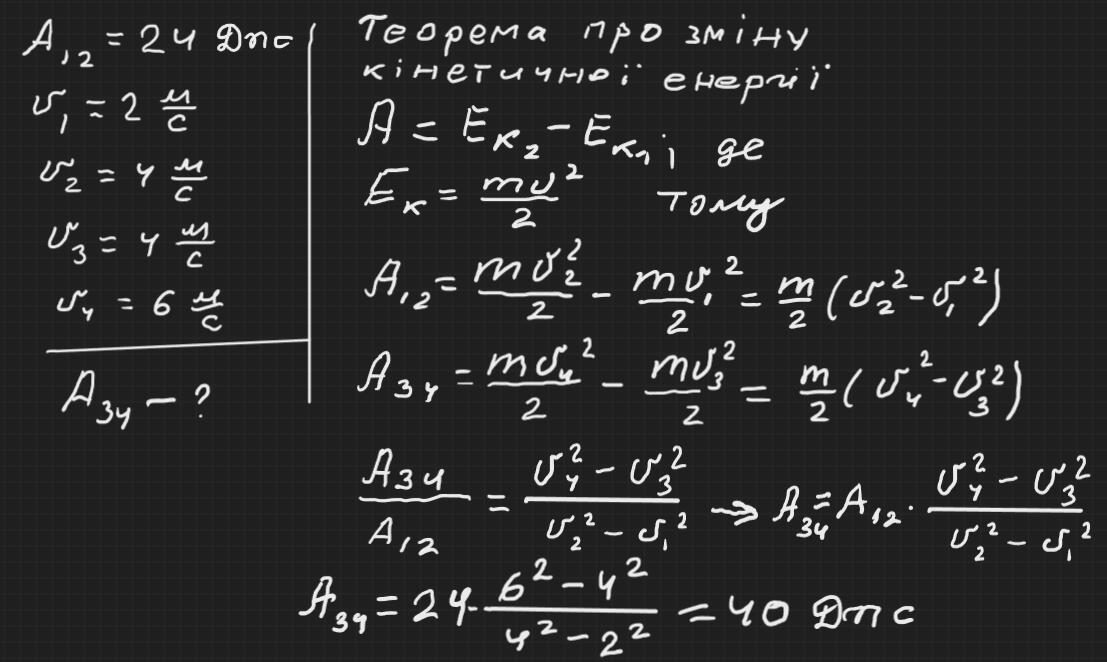 A₁₂ = 24 Дж
υ₁ = 2 м/с
υ₂ = 4 м/с
υ₃ = 4 м/с
υ₄ = 6 м/с
A₃₄ – ?
Теорема про зміну
кінетичної енергії
A = Eк₂ – Eк₁, де
Eк = mυ²/2 тому
A₁₂ = mυ₂²/2 – mυ₁²/2 = m/2 (υ₂² – υ₁²)
A₃₄ = mυ₄²/2 – mυ₃²/2 = m/2 (υ₄² – υ₃²)
A₃₄/A₁₂ = (υ₄² – υ₃²)/(υ₂² – υ₁²) → A₃₄ = A₁₂ · (υ₄² – υ₃²)/(υ₂² – υ₁²)
A₃₄ = 24 · (6² – 4²)/(4² – 2²) = 40 Дж